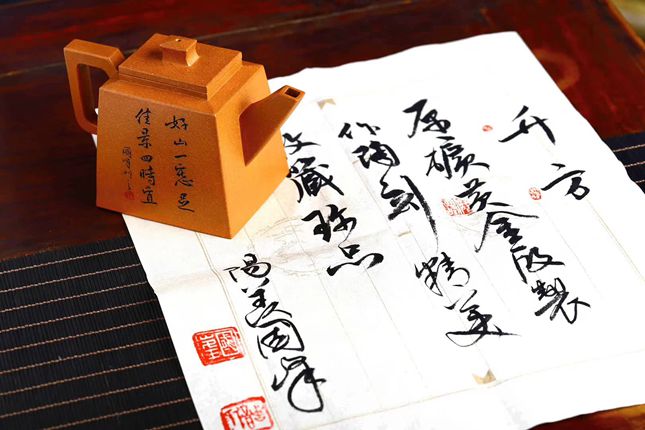 升方
原礦黄金段製
作陶刻精美
收藏珍品
陽羨国峰
好山一窓足
佳景四時宜